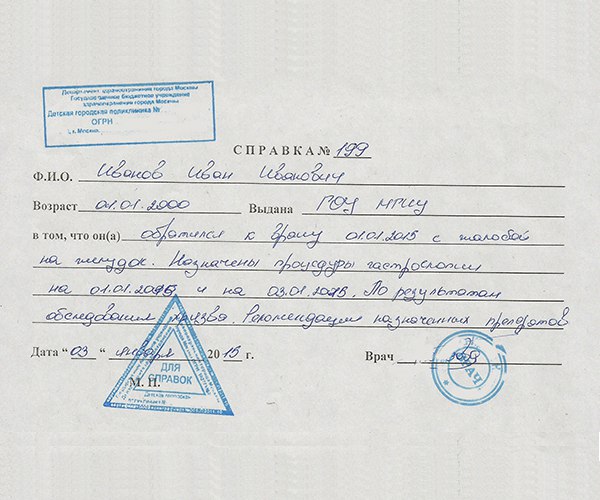 Департамент здравоохранения города Москвы
Государственное бюджетное учреждение
здравоохранения города Москвы
Детская городская поликлиника №
ОГРН
г. Москва
СПРАВКА № 199
Ф.И.О. Иванов Иван Иванович
Возраст 01.01.2000 Выдана ГОУ МГИУ
в том, что он(а) обратился к врачу 01.01.2015 с жалобой
на желудок. Назначены процедуры гастроскопии
на 01.01.2015, и на 03.01.2015. По результатам
обследования язва. Рекомендации назначенных препаратов
Дата “03 “ января 2015 г. Врач
М. П.
ДЛЯ
СПРАВОК
ВРАЧ